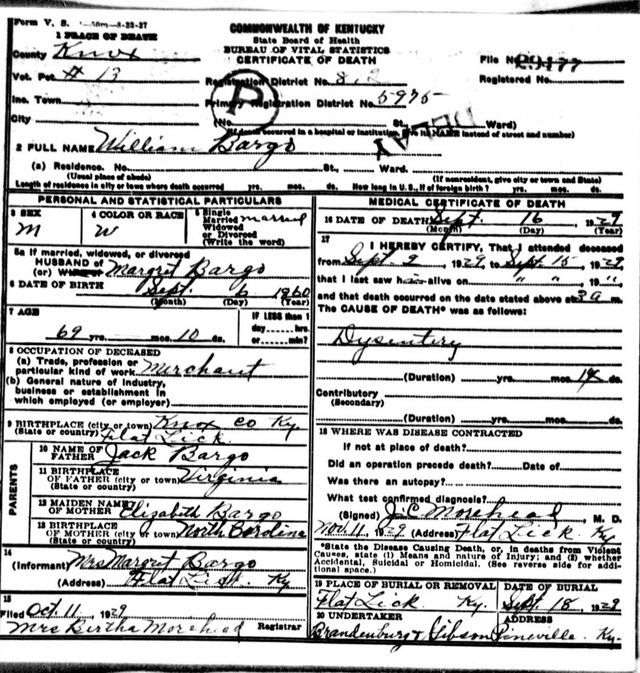 Form V. S. 1-50m-8-23-27
COMMONWEALTH OF KENTUCKY
State Board of Health
BUREAU OF VITAL STATISTICS
CERTIFICATE OF DEATH
1 PLACE OF DEATH
County Knox
File No. 29177
Vot. Pct. # 13 Registration District No. Registered No.
Inc. Town Primary Registration District No. 5975
City (No. St., Ward)
P
DELAY
(If death occurred in a hospital or institution, give its NAME instead of street and number)
2 FULL NAME William Bargo
(a) Residence. No. St., Ward.
(Usual place of abode) (If nonresident, give city or town and State)
Length of residence in city or town where death occurred yrs. mos. ds. How long in U. S., If of foreign birth? yrs. mos. ds.
PERSONAL AND STATISTICAL PARTICULARS
3 SEX M
4 COLOR OR RACE W
5 Single Married Widowed or Divorced (Write the word) married
5a If married, widowed, or divorced
HUSBAND of
(or) Margret Bargo
6 DATE OF BIRTH Sept. 6 1860
(Month) (Day) (Year)
7 AGE
69 yrs. mos. 10 ds.
IF LESS than 1
day hrs.
or min.?
8 OCCUPATION OF DECEASED
(a) Trade, profession or
particular kind of work Merchant
(b) General nature of industry,
business or establishment in
which employed (or employer)
9 BIRTHPLACE (city or town) Knox Co Ky.
(State or country) Flat Lick.
PARENTS
10 NAME OF
FATHER Jack Bargo
11 BIRTHPLACE
OF FATHER (city or town) Virginia
(State or country)
12 MAIDEN NAME
OF MOTHER Elizabeth Bargo
13 BIRTHPLACE
OF MOTHER (city or town) North Carolina
(State or country)
14
(Informant) Mrs Margret Bargo
(Address) Flat Lick Ky
15
Filed Oct 11, 1929
Mrs Bertha Morehead Registrar
MEDICAL CERTIFICATE OF DEATH
16 DATE OF DEATH Sept. 16 1929
(Month) (Day) (Year)
17
I HEREBY CERTIFY, That I attended deceased
from Sept 2 1929, to Sept 15 1929,
that I last saw him alive on " " , 19 ",
and that death occurred on the date stated above at 3 a m.
The CAUSE OF DEATH* was as follows:
Dysentery
(Duration) yrs. mos. 14 ds.
Contributory
(Secondary)
(Duration) yrs. mos. ds.
18 WHERE WAS DISEASE CONTRACTED
If not at place of death?
Did an operation precede death? Date of
Was there an autopsy?
What test confirmed diagnosis?
(Signed) J. C. Morehead, M. D.
Nov. 11 1929 (Address) Flat Lick Ky
*State the Disease Causing Death, or, in deaths from Violent
Causes, state (1) Means and nature of Injury; and (2) whether
Accidental, Suicidal or Homicidal. (See reverse side for addi-
tional space.)
19 PLACE OF BURIAL OR REMOVAL DATE OF BURIAL
Flat Lick Ky. Sept. 18, 1929
20 UNDERTAKER ADDRESS
Brandenburg & Gibson Pineville Ky.